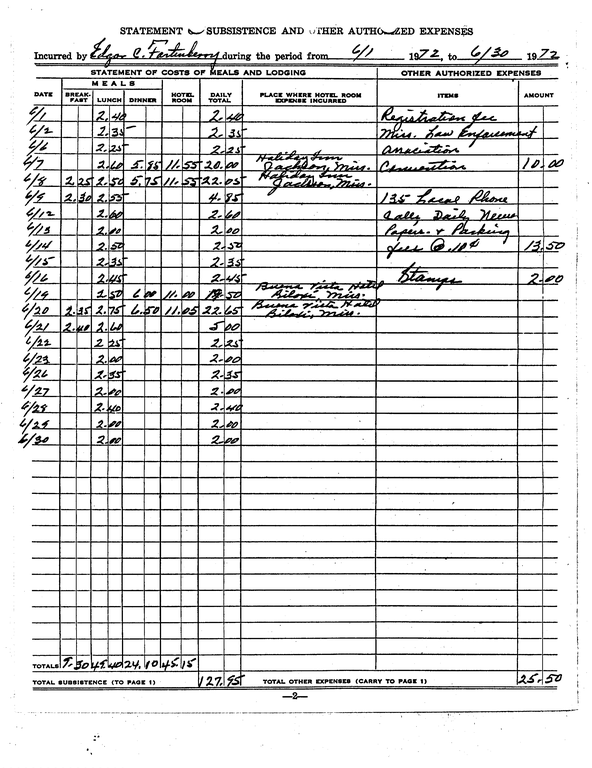 STATEMENT SUBSISTENCE AND OTHER AUTHORIZED EXPENSES
Incurred by Edgar C. Fortenberry during the period from 6/1 1972, to 6/30 1972
STATEMENT OF COSTS OF MEALS AND LODGING OTHER AUTHORIZED EXPENSES
MEALS
DATE BREAK-FAST LUNCH DINNER HOTEL ROOM DAILY TOTAL PLACE WHERE HOTEL ROOM EXPENSE INCURRED ITEMS AMOUNT
6/1 2.40 2.40 Registration fee
6/2 2.35 2.35 Miss. Law Enforcement
6/6 2.25 2.25 Association
6/7 2.60 5.85 11.55 20.00 Holiday Inn Jackson, Miss. Convention 10.00
6/8 2.25 2.50 5.75 11.55 22.05 Holiday Inn Jackson, Miss.
6/9 2.30 2.55 4.85 135 Local Phone
6/12 2.60 2.60 Calls, Daily News
6/13 2.00 2.00 Papers & Parking
6/14 2.50 2.50 fees @ .10¢ 13.50
6/15 2.35 2.35
6/16 2.45 2.45 Stamps 2.00
6/19 2.50 6.00 11.00 19.50 Buena Vista Hotel Biloxi, Miss.
6/20 2.35 2.75 6.50 11.05 22.65 Buena Vista Hotel Biloxi, Miss.
6/21 2.40 2.60 5.00
6/22 2.25 2.25
6/23 2.00 2.00
6/26 2.35 2.35
6/27 2.00 2.00
6/28 2.40 2.40
6/29 2.00 2.00
6/30 2.00 2.00
TOTALS 24.10 45.15
TOTAL SUBSISTENCE (TO PAGE 1) 127.95 TOTAL OTHER EXPENSES (CARRY TO PAGE 1) 25.50
—2—